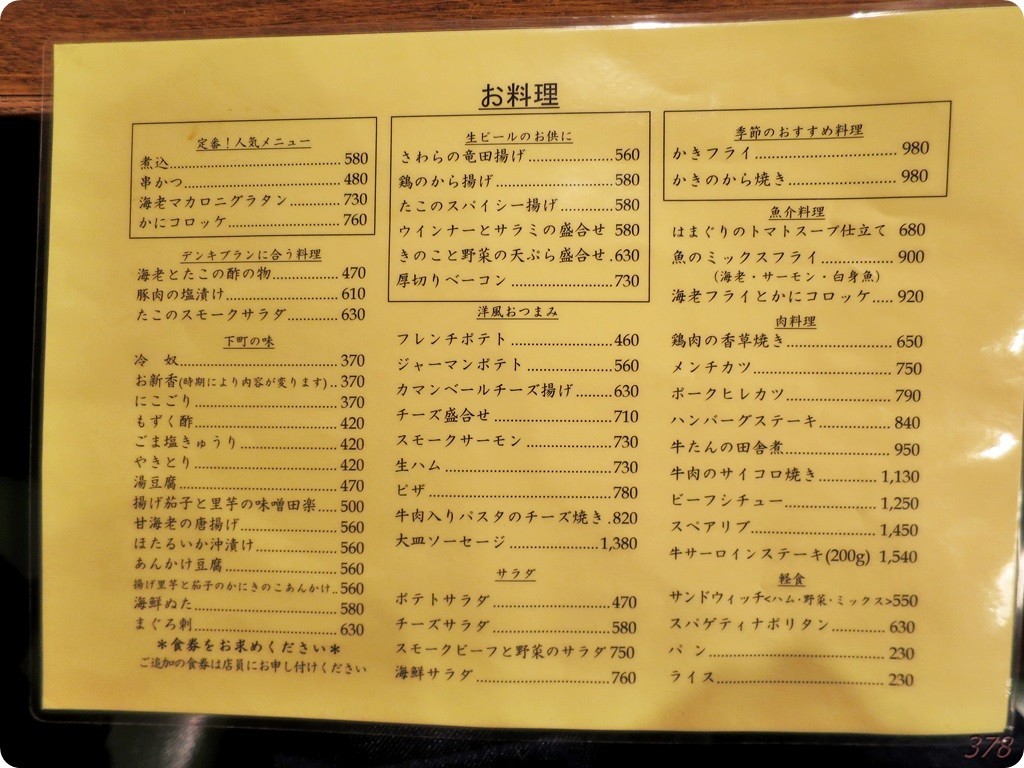 お料理
定番！人気メニュー
煮込 580
串かつ 480
海老マカロニグラタン 730
かにコロッケ 760
デンキブランに合う料理
海老とたこの酢の物 470
豚肉の塩漬け 610
たこのスモークサラダ 630
下町の味
冷　奴 370
お新香(時期により内容が変ります) 370
にこごり 370
もずく酢 420
ごま塩きゅうり 420
やきとり 420
湯豆腐 470
揚げ茄子と里芋の味噌田楽 500
甘海老の唐揚げ 560
ほたるいか沖漬け 560
あんかけ豆腐 560
揚げ里芋と茄子のかにきのこあんかけ 560
海鮮ぬた 580
まぐろ刺 630
＊食券をお求めください＊
ご追加の食券は店員にお申し付けください
生ビールのお供に
さわらの竜田揚げ 560
鶏のから揚げ 580
たこのスパイシー揚げ 580
ウインナーとサラミの盛合せ 580
きのこと野菜の天ぷら盛合せ 630
厚切りベーコン 730
洋風おつまみ
フレンチポテト 460
ジャーマンポテト 560
カマンベールチーズ揚げ 630
チーズ盛合せ 710
スモークサーモン 730
生ハム 730
ピザ 780
牛肉入りパスタのチーズ焼き 820
大皿ソーセージ 1,380
サラダ
ポテトサラダ 470
チーズサラダ 580
スモークビーフと野菜のサラダ 750
海鮮サラダ 760
季節のおすすめ料理
かきフライ 980
かきのから焼き 980
魚介料理
はまぐりのトマトスープ仕立て 680
魚のミックスフライ 900
(海老・サーモン・白身魚)
海老フライとかにコロッケ 920
肉料理
鶏肉の香草焼き 650
メンチカツ 750
ポークヒレカツ 790
ハンバーグステーキ 840
牛たんの田舎煮 950
牛肉のサイコロ焼き 1,130
ビーフシチュー 1,250
スペアリブ 1,450
牛サーロインステーキ(200g) 1,540
軽食
サンドウィッチ<ハム・野菜・ミックス> 550
スパゲティナポリタン 630
パ ン 230
ライス 230
378